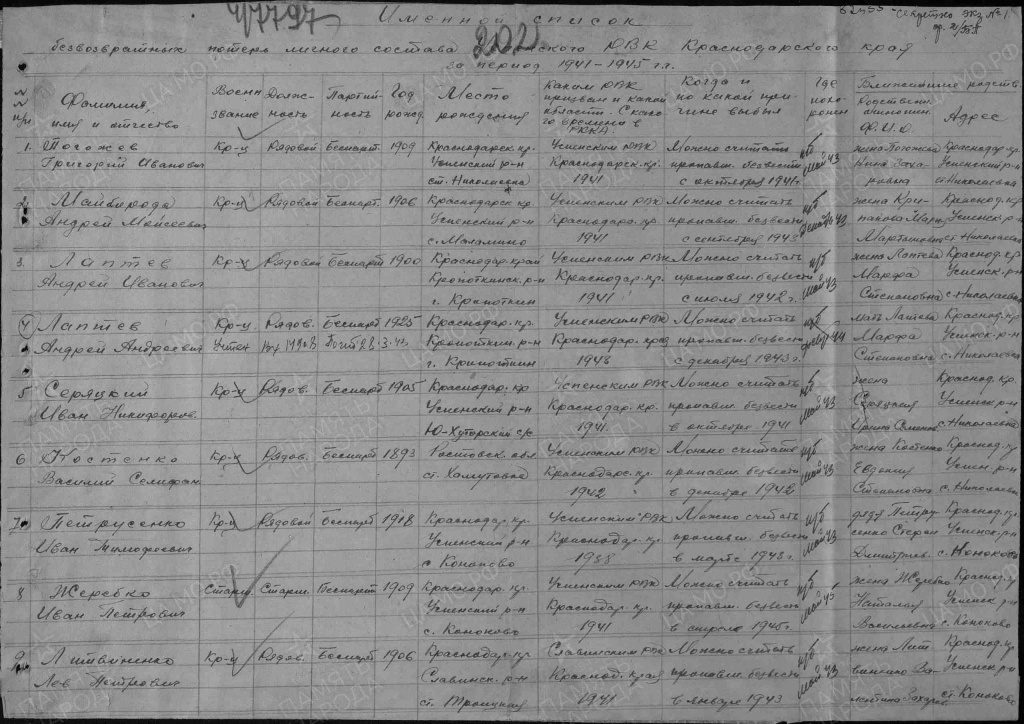 47797
Именной список
62555 Секретно экз. №1
безвозвратных потерь личного состава Успенского РВК Краснодарского края
202
за период 1941-1945 г.г.
№№ п/п Фамилия, имя и отчество Воен. звание Долж-ность Партий-ность Год рожд. Место рождения Каким РВК призван и какой области. С како-го времени в РККА. Когда и по какой при-чине выбыл Где похо-ронен Ближайшие родств. Ф.И.О. Адрес
1. Погожев Кр-ц Рядовой Беспарт 1909 Краснодарск. кр. Успенским РВК Можно считать жена Погожева Краснод. кр.
Григорий Иванович Успенский р-н Краснодарск. кр. пропавш. безвести май 43 Анна Заха- Успенский р-н
ст. Николаевка 1941 с октября 1941г. ровна ст. Николаевка
2. Майборода Кр-ц Рядовой Беспарт. 1906 Краснодарск. кр Успенским РВК Можно считать жена Краснод. кр.
Андрей Мойсеевич Успенский р-н Краснодарск. кр. пропавш. безвести Успенск. р-н
с. Маламино 1941 с сентября 1943 Мартыновна ст. Николаевка
3. Лаптев Кр-ц Рядовой Беспарт 1900 Краснодар. край Успенским РВК Можно считать жена Лаптева Краснод. кр
Андрей Иванович Кропоткинск. р-н Краснодар. кр. пропавш. безвести май 43 Марфа Успенск. р-н
г. Кропоткин 1941 с июля 1942 г. Степановна с. Николаевка
4 Лаптев Кр-ц Рядов. Беспарт 1925 Краснодар. кр. Успенским РВК Можно считать мать Лаптева Краснод. кр
Андрей Андреевич Учтен Погиб 8.3.43 Кропоткин. р-н Краснодар. края пропавш. безвести Марфа Успенск. р-н
г. Кропоткин 1943 с декабря 1943 г. Степановна с. Николаевка
5 Серяцкий Кр-ц Рядов. Беспарт 1905 Краснодар. кр Успенским РВК Можно считать жена Краснод. кр.
Иван Никифоров. Успенский р-н Краснодар. кр. пропавш. безвести май 43 Серяцкая Успенск р-н
Ю-Хуторский с/с 1941. в октябре 1941 с. Николаевка
6 Костенко Кр-ц Рядов. Беспарт 1893 Ростовск. обл. Успенским РВК Можно считать жена Костенко Краснод. кр
Василий Селифан. ст. Хомутовая Краснодарск. кр. пропавш. безвести май 43 Евдокия Успен. р-н
1942 в декабре 1942 Степановна с. Николаевка
7. Петрусенко Кр-ц Рядовой Беспарт 1918 Краснодар. кр. Успенским РВК Можно считать дядя Петру- Краснод. кр.
Иван Тимофеевич Успенский р-н Краснодар. кр. пропавш. безвести май 43 сенко Успенск. р-н
с Коноково 1938 в марте 1943 г. Дмитриев. с. Коноково
8 Жеребко Старш. Старш. Беспарт 1909 Краснодар. кр. Успенским РВК Можно считать жена Жеребко Краснод. кр
Иван Петрович Успенский р-н Краснодар. кр. пропавш. безвести Наталия Успенск р-н
с. Коноково 1941 Васильевна с. Коноково
9. Литвиненко Кр-ц Рядов. Беспарт 1906 Краснодар. кр. Славинским РВК Можно считать жена Лит- Краснод. кр.
Лев Петрович Славинск. р-н Краснод. края пропавш. безвести май 43 виненко Ва- Успенск р-н
ст. Троицкая 1941 в январе 1943 лентина Захар. ст. Коноково